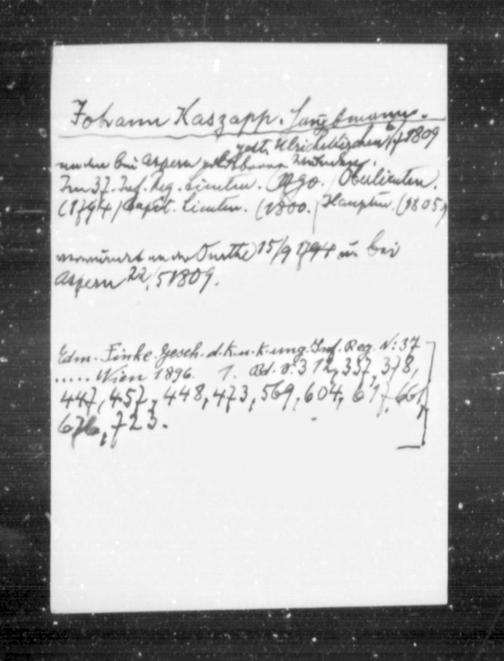 Johann Kaszapp. Hauptmann.
gest. Ulrichskirchen 1809
bei Aspern
Im 37. Inf. Reg. Lieuten. (1790.) Oberlieuten.
(1794) Capit. Lieuten. (1800.) Hauptm. (1805)
an der Ourthe 15/9 1794 u. bei
Aspern 22/5 1809.
Edm. Finke. Gesch. d. k. u. k. ung. Inf. Reg. N: 37
..... Wien 1896. 1. Bd. S. 312, 337, 378,
447, 457, 448, 473, 569, 604, 617, 661,
676, 723.